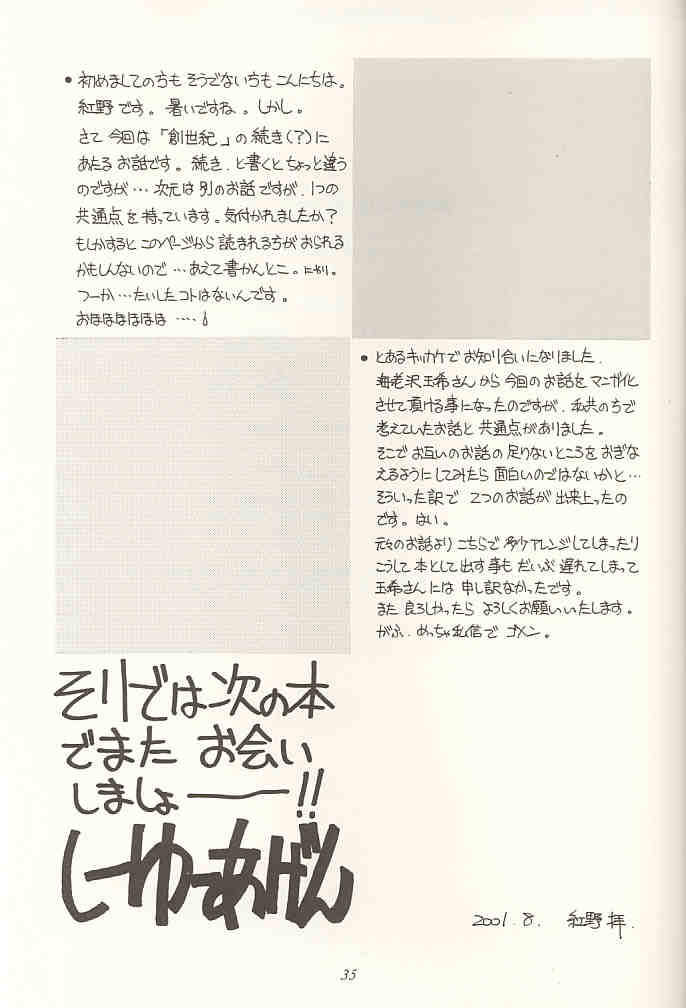 ● 初めましての方も そうでない方も こんにちは。
紅野です。暑いですね。しかし。
さて 今回は「創世紀」の続き(?)に
あたる お話です。続き、と書くと ちょっと違う
のですが… 次元は 別のお話ですが、1つの
共通点を 持っています。気付かれましたか?
もしかすると このページから 読まれる方が おられる
かもしんないので …あえて 書かんとこ。にやり。
つーか …たいしたコトは ないんです。
おほほほほほほ ‥‥!
● とあるキッカケで お知り合いになりました、
海老沢玉希さんから 今回のお話を マンガ化
させて頂ける事に なったのですが、私共の方で
考えていたお話と 共通点がありました。
そこで お互いのお話の 足りないところを おぎな
えるように してみたら 面白いのではないかと…
そういった訳で 2つのお話が 出来上ったの
です。はい。
元々のお話より こちらで 多少アレンジしてしまったり
こうして 本として出す事も だいぶ 遅れてしまって
玉希さんには 申し訳なかったです。
また 良ろしかったら よろしくお願いいたします。
がふ、めっちゃ私信で ゴメン。
そりでは次の本
でまた お会い
しましょ――!!
しーゆーあげん
2001.8. 紅野 拝.
35